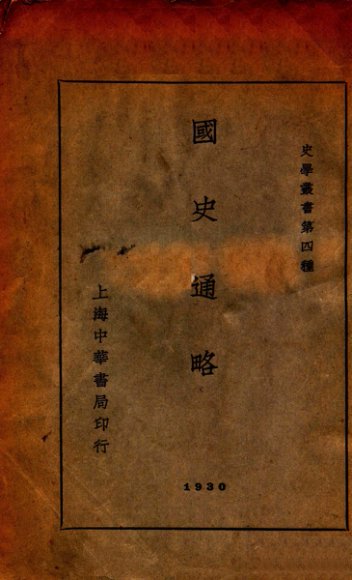 史學叢書第四種
國史通略
上海中華書局印行
1930